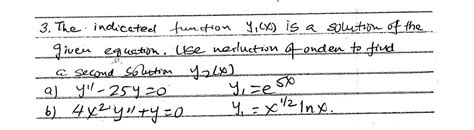 3. The indicated function y₁(x) is a solution of the
given equation. Use reduction of order to find
a second solution y₂(x)
a) y'' - 25y = 0 y₁ = e⁵ˣ
b) 4x²y'' + y = 0 y₁ = x^1/2 ln x.